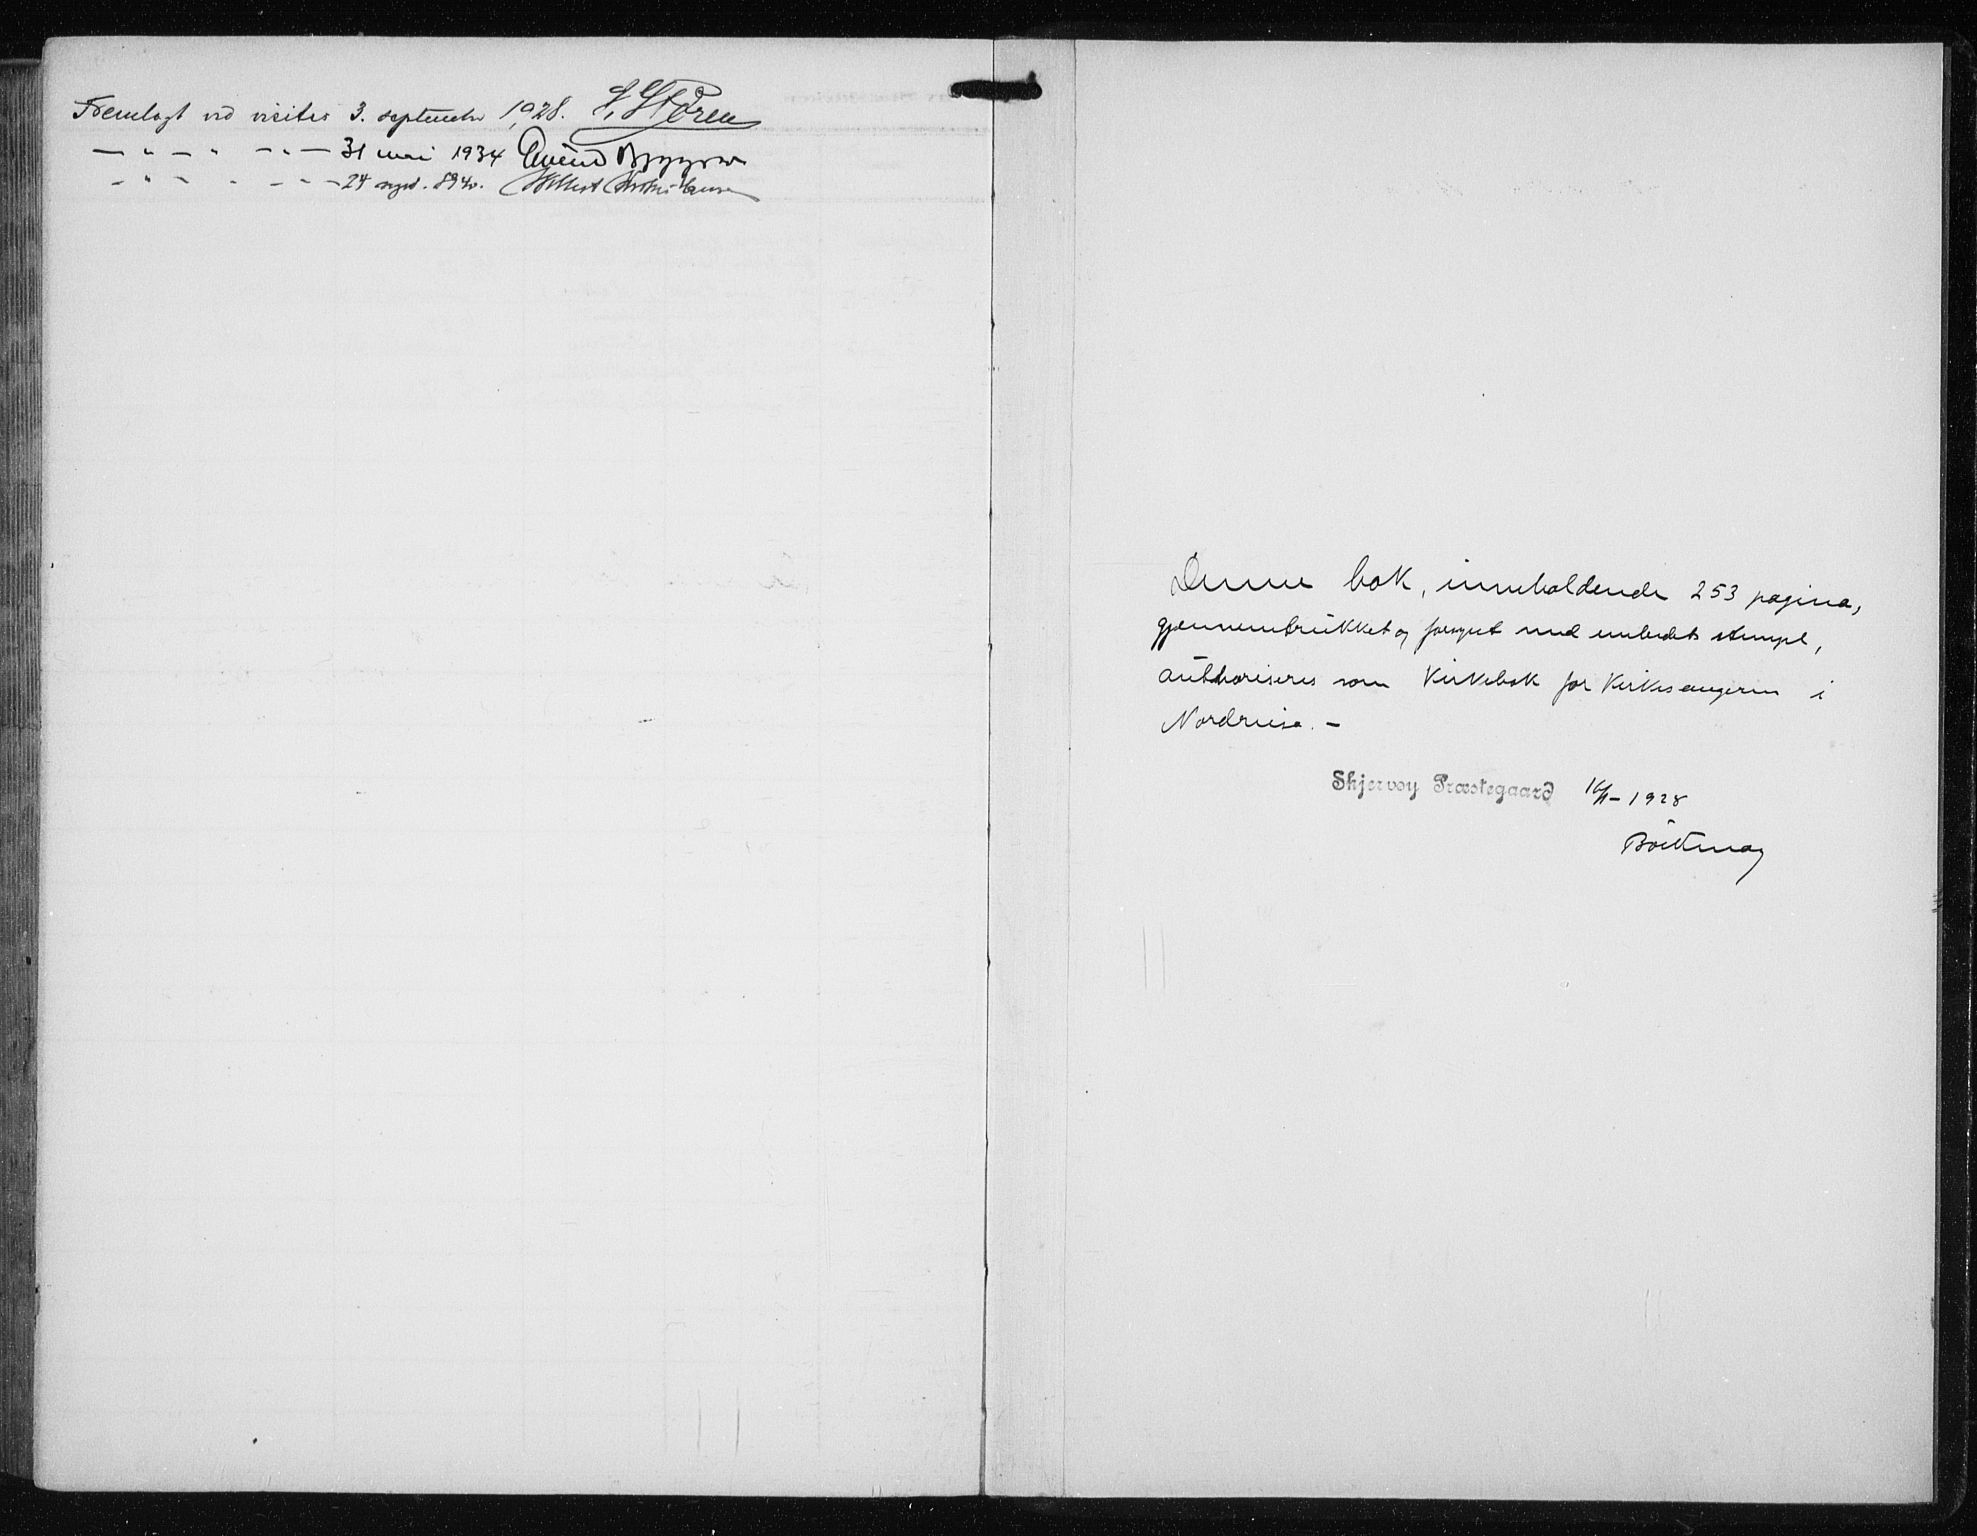 Fremlagt ved visitas 3. september 1928. Støren
— " — " — " — 31 mai 1934 Eivind Berggrav
— " — " — " — 24 sept. 1940.
Denne bok, inneholdende 253 pagina,
gjennemtrukket og forsynt med embedets stempel,
authoriseres som kirkebok for kirkesangeren i
Nordreisa. –
Skjervøy Præstegaard 16/11 – 1928